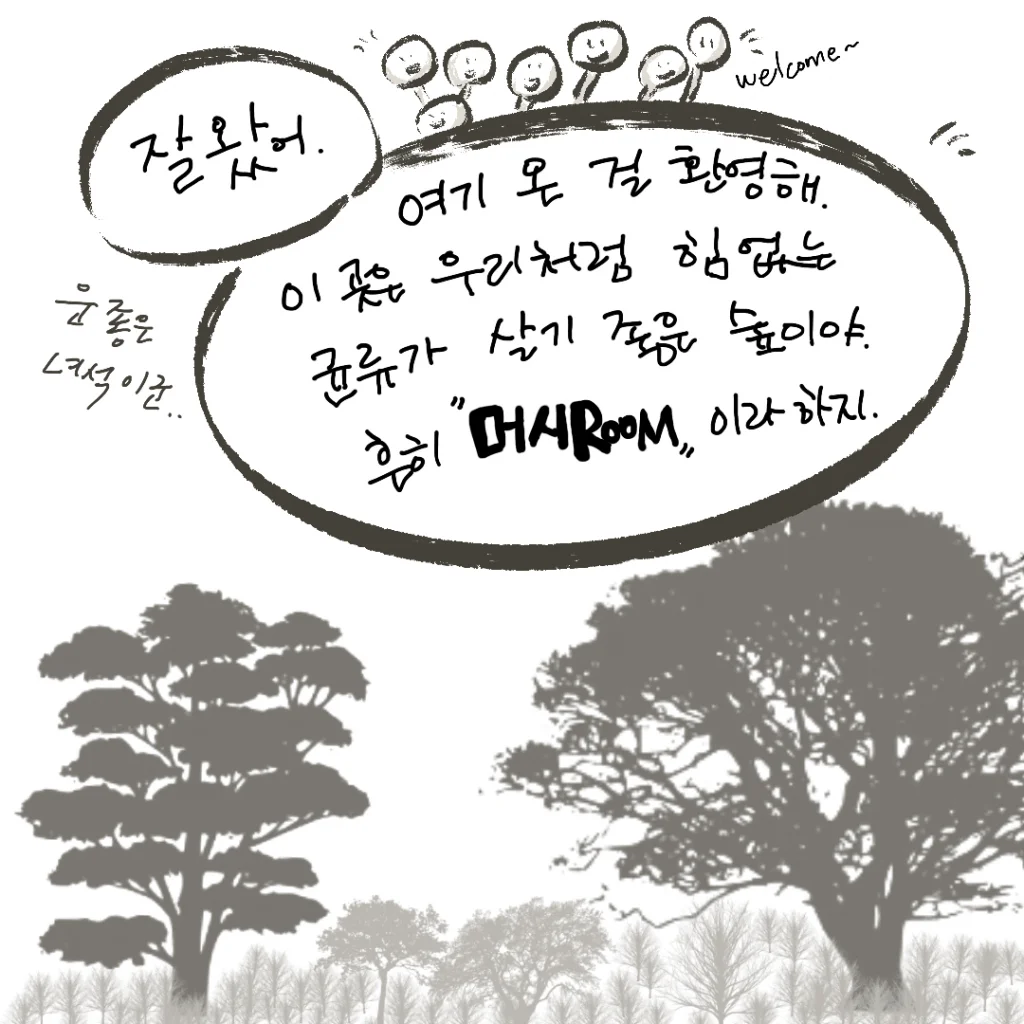 welcome~
잘 왔어.
여기 온 걸 환영해.
이 곳은 우리처럼 힘 없는
균류가 살기 좋은 숲이야.
흔히 "머시ROOM" 이라 하지.
운 좋은
녀석이군..